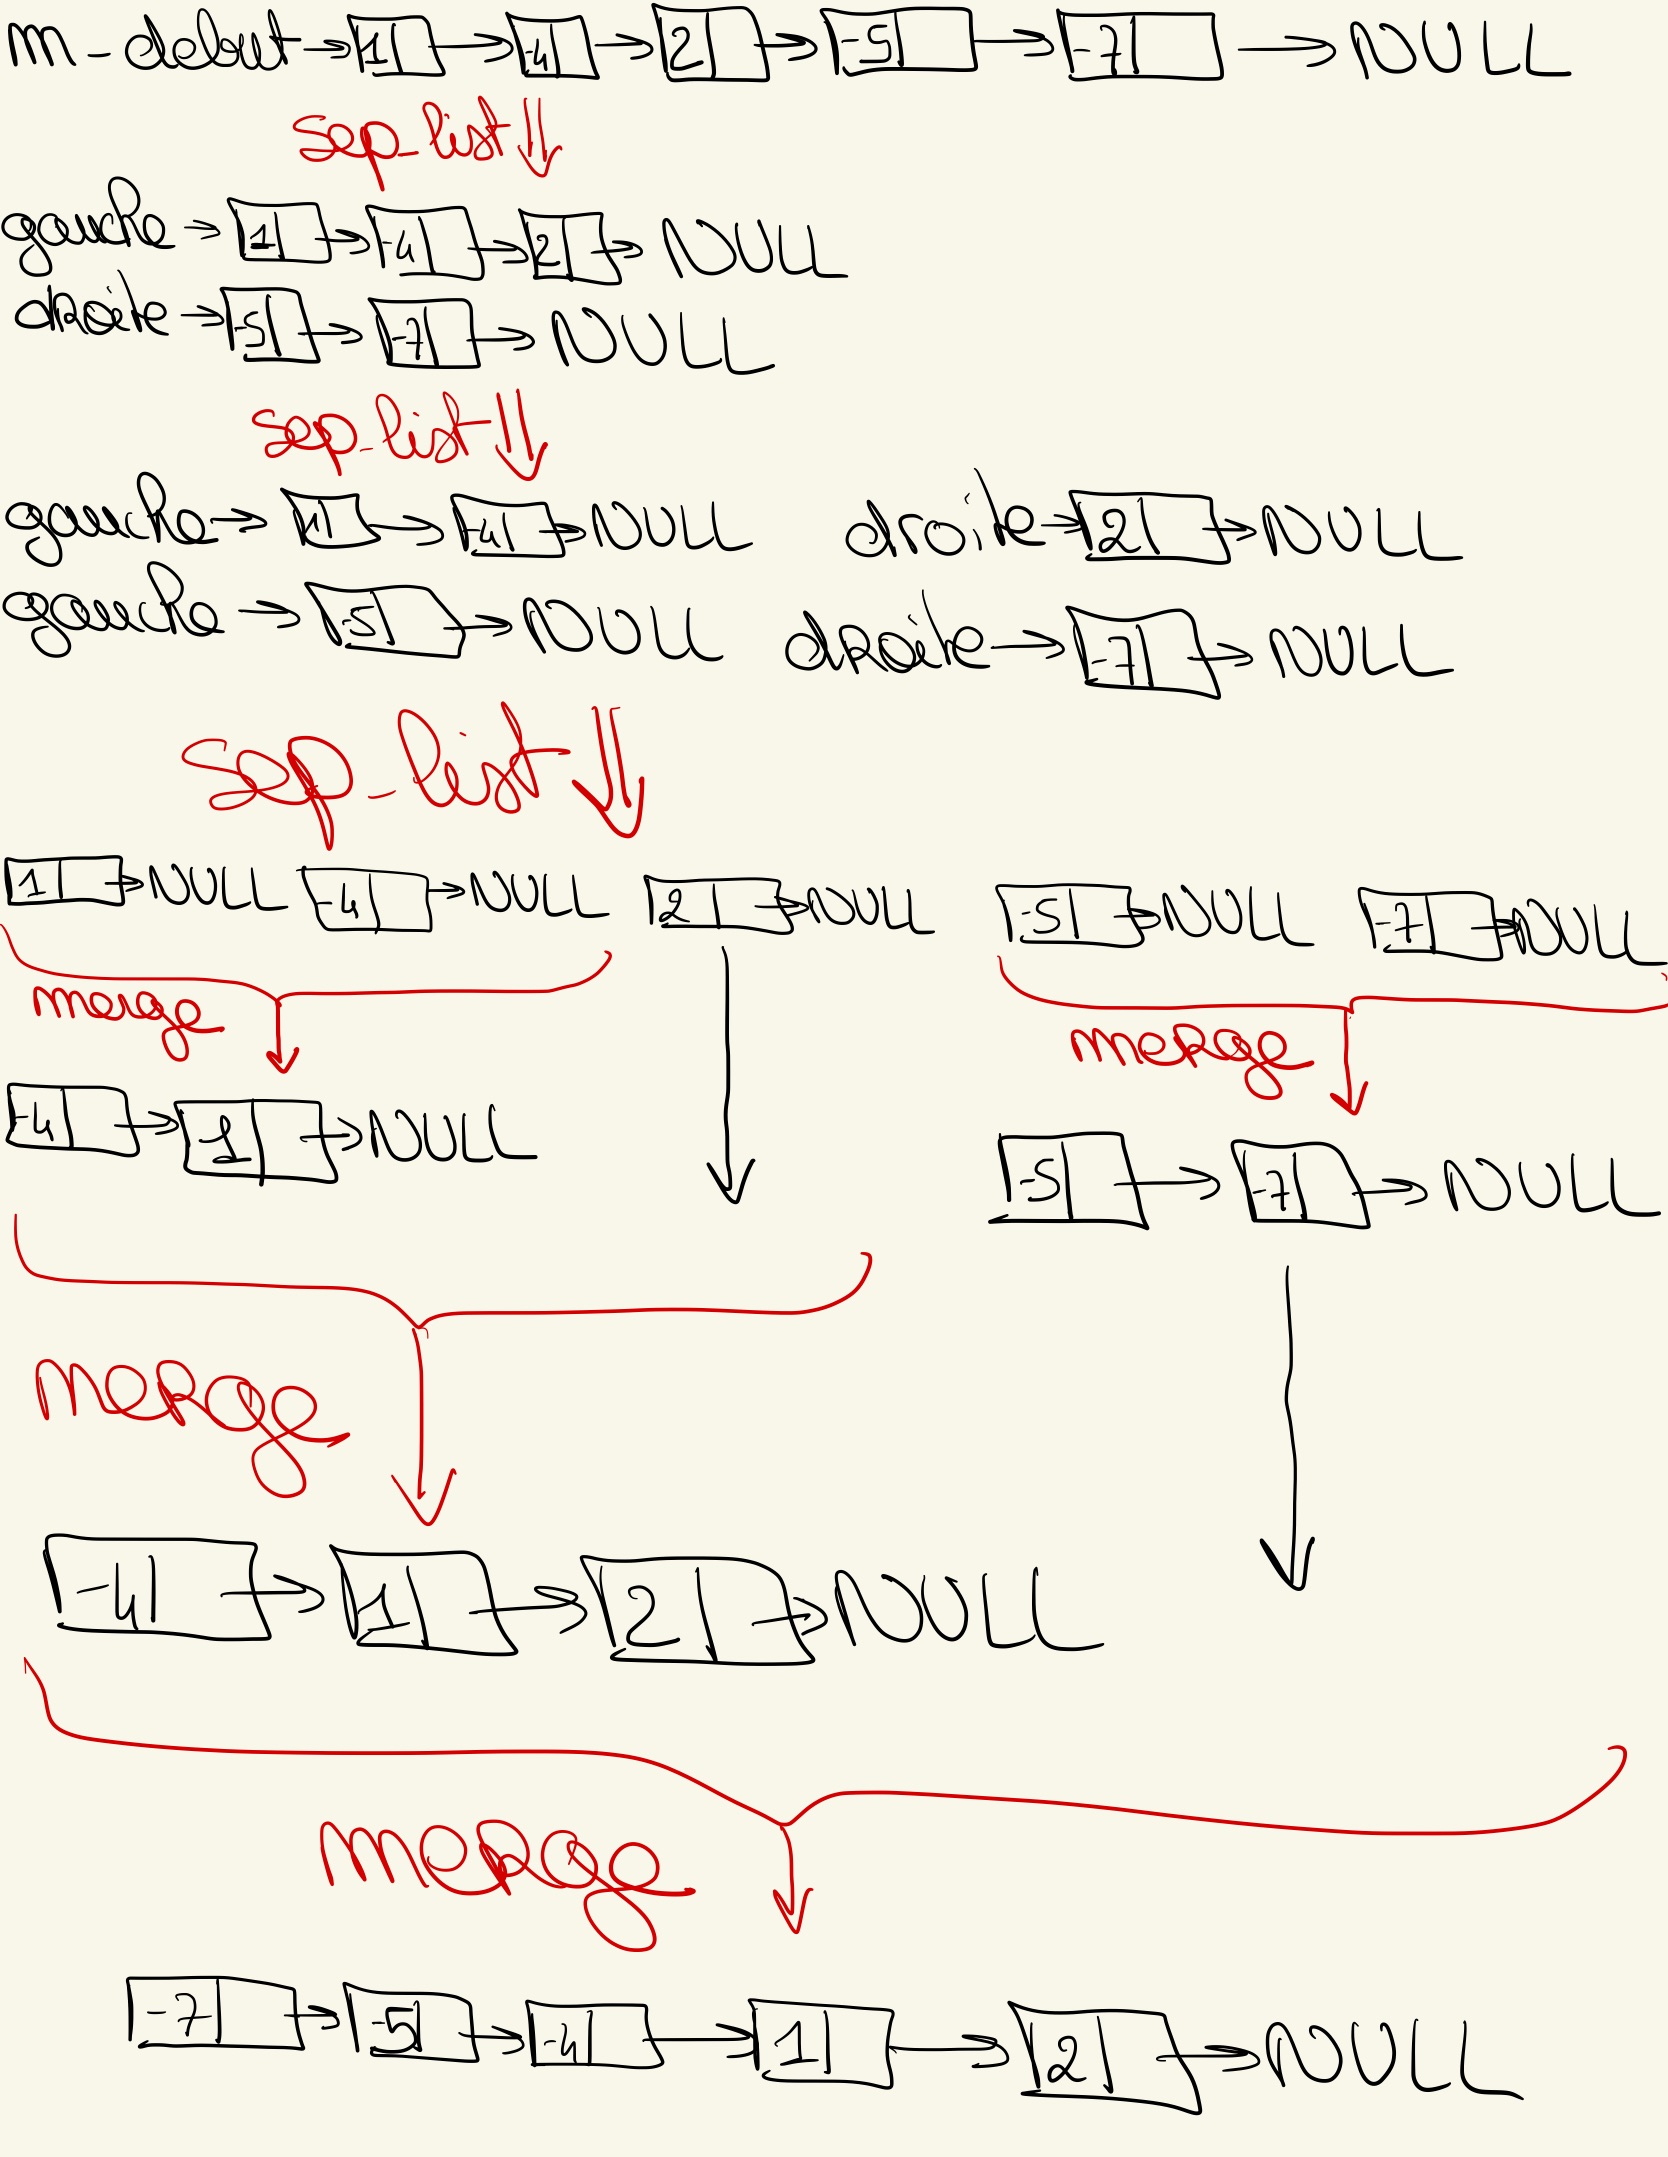 m_debut → 1 → -4 → 2 → -5 → -7 → NULL
sep_list
gauche → 1 → -4 → 2 → NULL
droite → -5 → -7 → NULL
sep_list
gauche → 1 → -4 → NULL droite → 2 → NULL
gauche → -5 → NULL droite → -7 → NULL
sep_list
1 → NULL -4 → NULL 2 → NULL -5 → NULL -7 → NULL
merge merge
-4 → 1 → NULL -5 → -7 → NULL
merge
-4 → 1 → 2 → NULL
merge
-7 → -5 → -4 → 1 → 2 → NULL